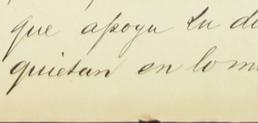 que apoya tu d
quietan en lo m